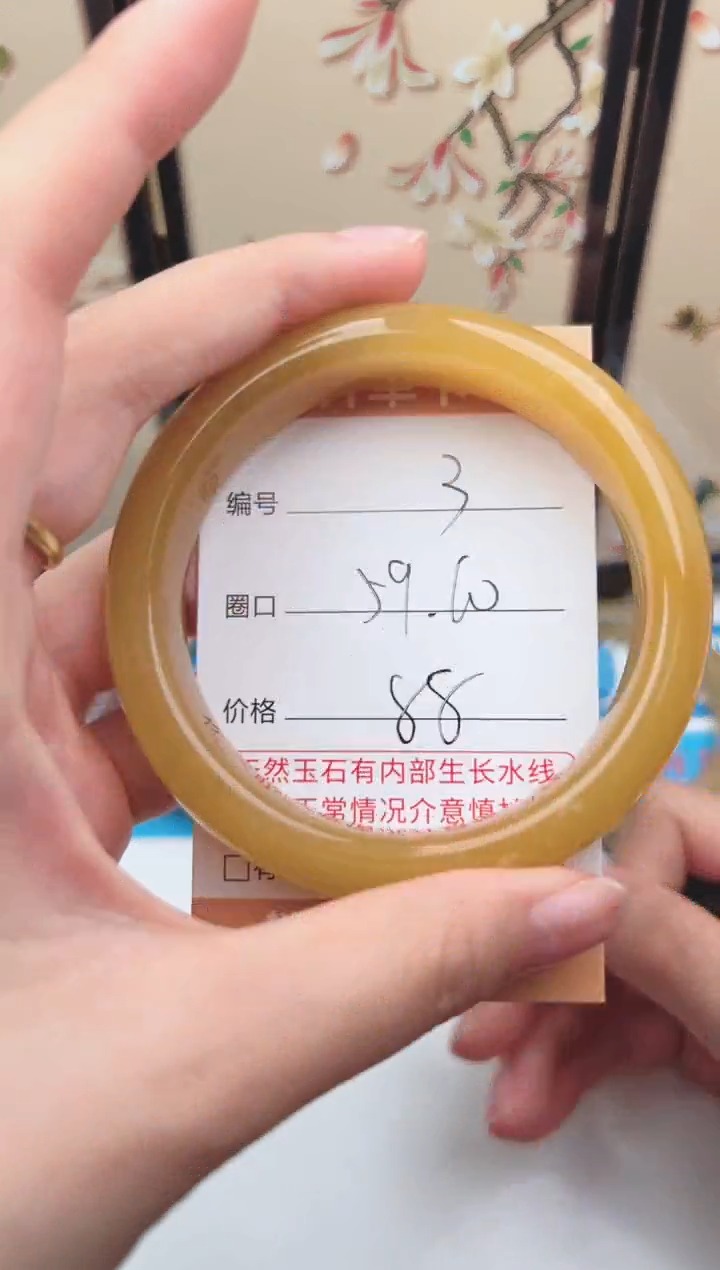 编号 3
圈口 59.60
价格 88
天然玉石有内部生长水线
正常情况介意慎拍
□有